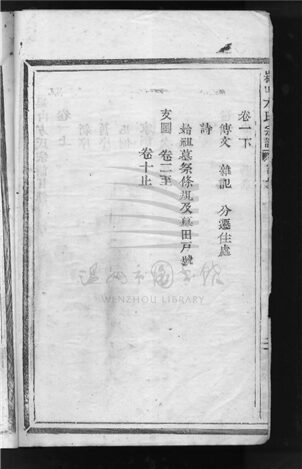 卷一下
傳文 雜記 分遷住處
詩
始祖墓祭條規及墓田戶號
支圖 卷二至
卷十止
温州市圖書館
WENZHOU LIBRARY